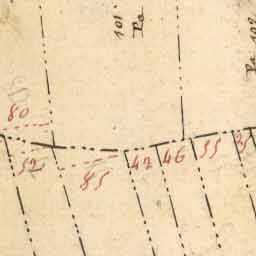 101
Pa
Pa 102
80
52
85
42
46
55